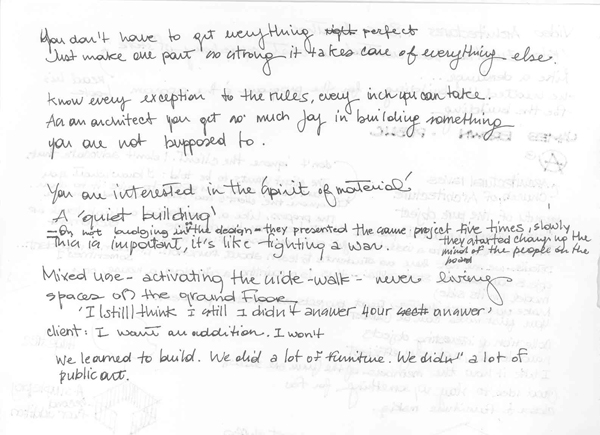 You don't have to get everything right perfect
Just make one part so strong it takes care of everything else.
Know every exception to the rules, every inch you can take.
As an architect you get so much joy in building something
you are not supposed to.
You are interested in the spirit of material'
A 'quiet building'
On not budging in the design - they presented the same project five times, slowly
they started changing the
minds of the people on the
board
This is important, it's like fighting a war.
Mixed use - activating the side-walk - never living
spaces on the ground floor
'I (still) think I still I didn't answer your answer'
client: I want an addition. I won't
We learned to build. We did a lot of furniture. We didn" a lot of
public art.